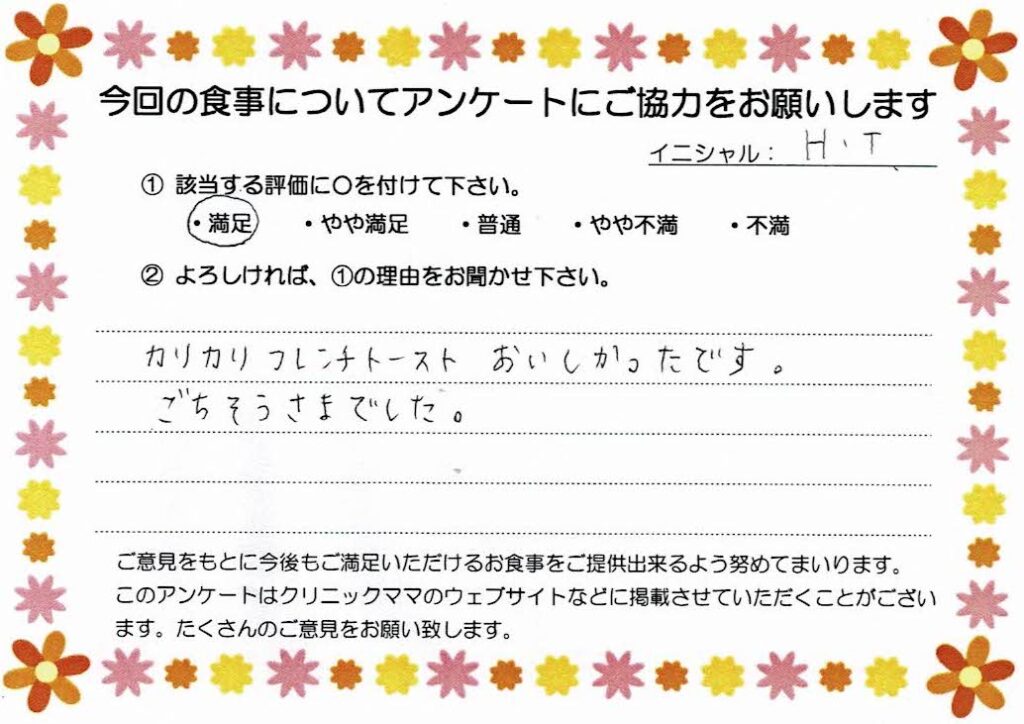 今回の食事についてアンケートにご協力をお願いします
イニシャル： H・T
① 該当する評価に〇を付けて下さい。
・満足 ・やや満足 ・普通 ・やや不満 ・不満
② よろしければ、①の理由をお聞かせ下さい。
カリカリフレンチトースト おいしかったです。
ごちそうさまでした。
ご意見をもとに今後もご満足いただけるお食事をご提供出来るよう努めてまいります。
このアンケートはクリニックママのウェブサイトなどに掲載させていただくことがござい
ます。たくさんのご意見をお願い致します。